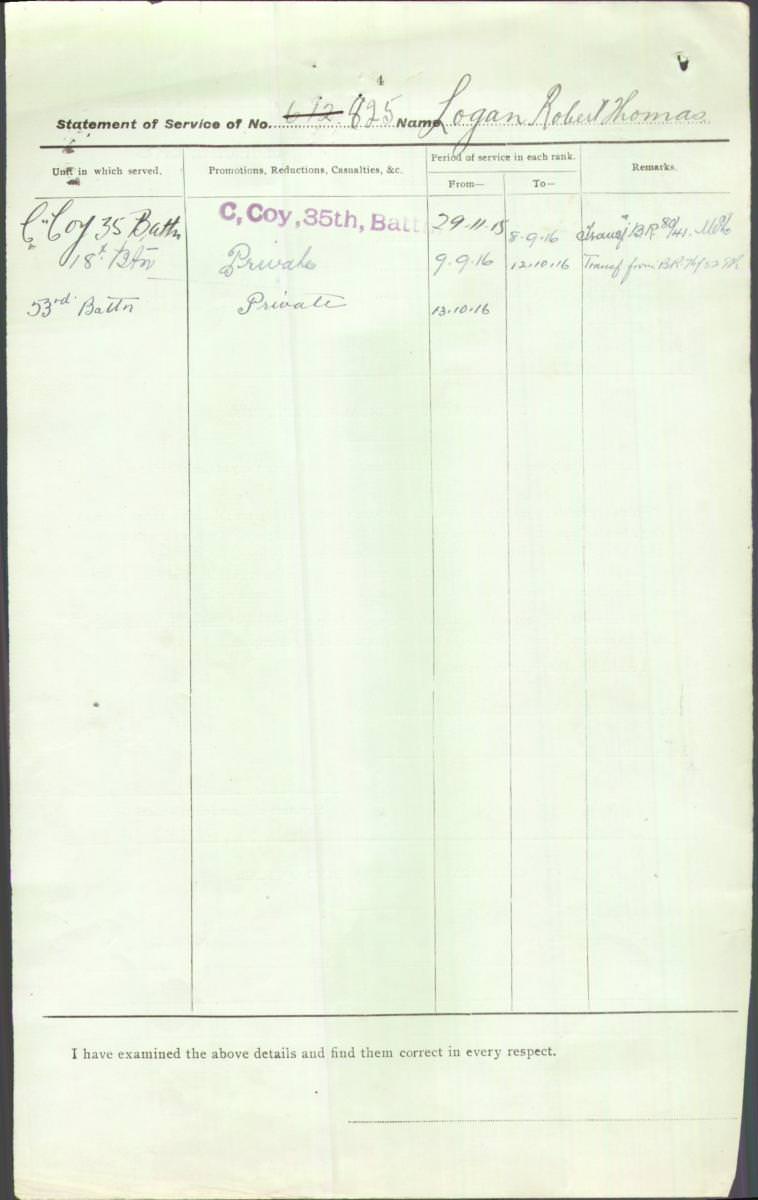 4
Statement of Service of No. 612 825 Name Logan Robert Thomas
Unit in which served. Promotions, Reductions, Casualties, &c. Period of service in each rank. Remarks.
From— To—
"C" Coy 35 Battn C, Coy, 35th, Batt 29.11.15 8.9.16 Transf BR 80/41.
18th Btn Private 9.9.16 12.10.16 Transf from BR
53rd Battn Private 13.10.16
I have examined the above details and find them correct in every respect.